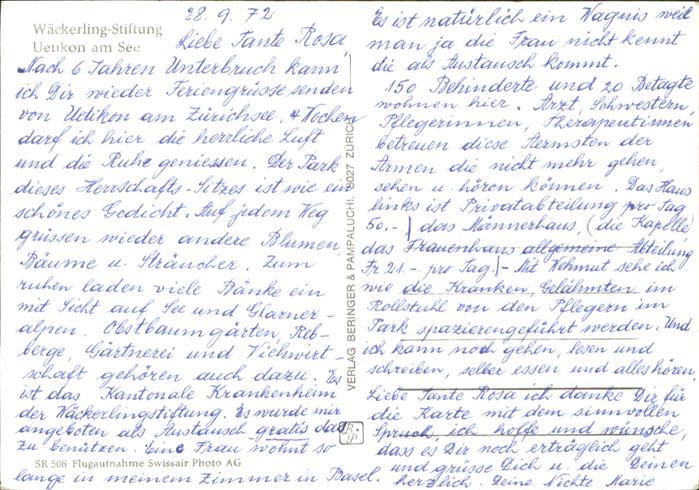 Wäckerling-Stiftung
Uetikon am See
28.9.72
Liebe Tante Rosa,
Nach 6 Jahren Unterbruch kann
ich Dir wieder Feriengrüsse senden
von Uetikon am Zürichsee. 4 Wochen
darf ich hier die herrliche Luft
und die Ruhe geniessen. Der Park
dieses Herrschafts-Sitzes ist wie ein
schönes Gedicht. Auf jedem Weg
grüssen wieder andere Blumen
Bäume u. Sträucher. Zum
ruhen laden viele Bänke ein
mit Sicht auf See und Glarner-
alpen. Obstbaumgärten, Reb-
berge, Gärtnerei und Viehwirt-
schaft gehören auch dazu. Es
ist das Kantonale Krankenheim
der Wäckerlingstiftung. Es wurde mir
angeboten als Austausch gratis das
zu benützen. Eine Frau wohnt so
SR 508 Flugaufnahme Swissair Photo AG
lange in meinem Zimmer in Basel.
VERLAG BERINGER & PAMPALUCHI, 8027 ZÜRICH
Es ist natürlich ein Wagnis weil
man ja die Frau nicht kennt
die als Austausch kommt.
150 Behinderte und 20 Betagte
wohnen hier. Arzt, Schwestern,
Pflegerinnen, Therapeutinnen
betreuen diese Aermsten der
Armen die nicht mehr gehen,
sehen u. hören können. Das Haus
links ist Privatabteilung pro Tag
50.-) das Männerhaus, (die Kapelle
das Frauenhaus allgemeine Abteilung
Fr 21.- pro Tag)- Mit Wehmut sehe ich
wie die Kranken, Gelähmten im
Rollstuhl von den Pflegern im
Park spazierengeführt werden. Und
ich kann noch gehen, lesen und
schreiben, selber essen und alles hören.
Liebe Tante Rosa ich danke Dir für
die Karte mit dem sinnvollen
Spruch, ich hoffe und wünsche,
dass es Dir noch erträglich geht
und grüsse Dich u. die Deinen
herzlich. Deine Nichte Marie